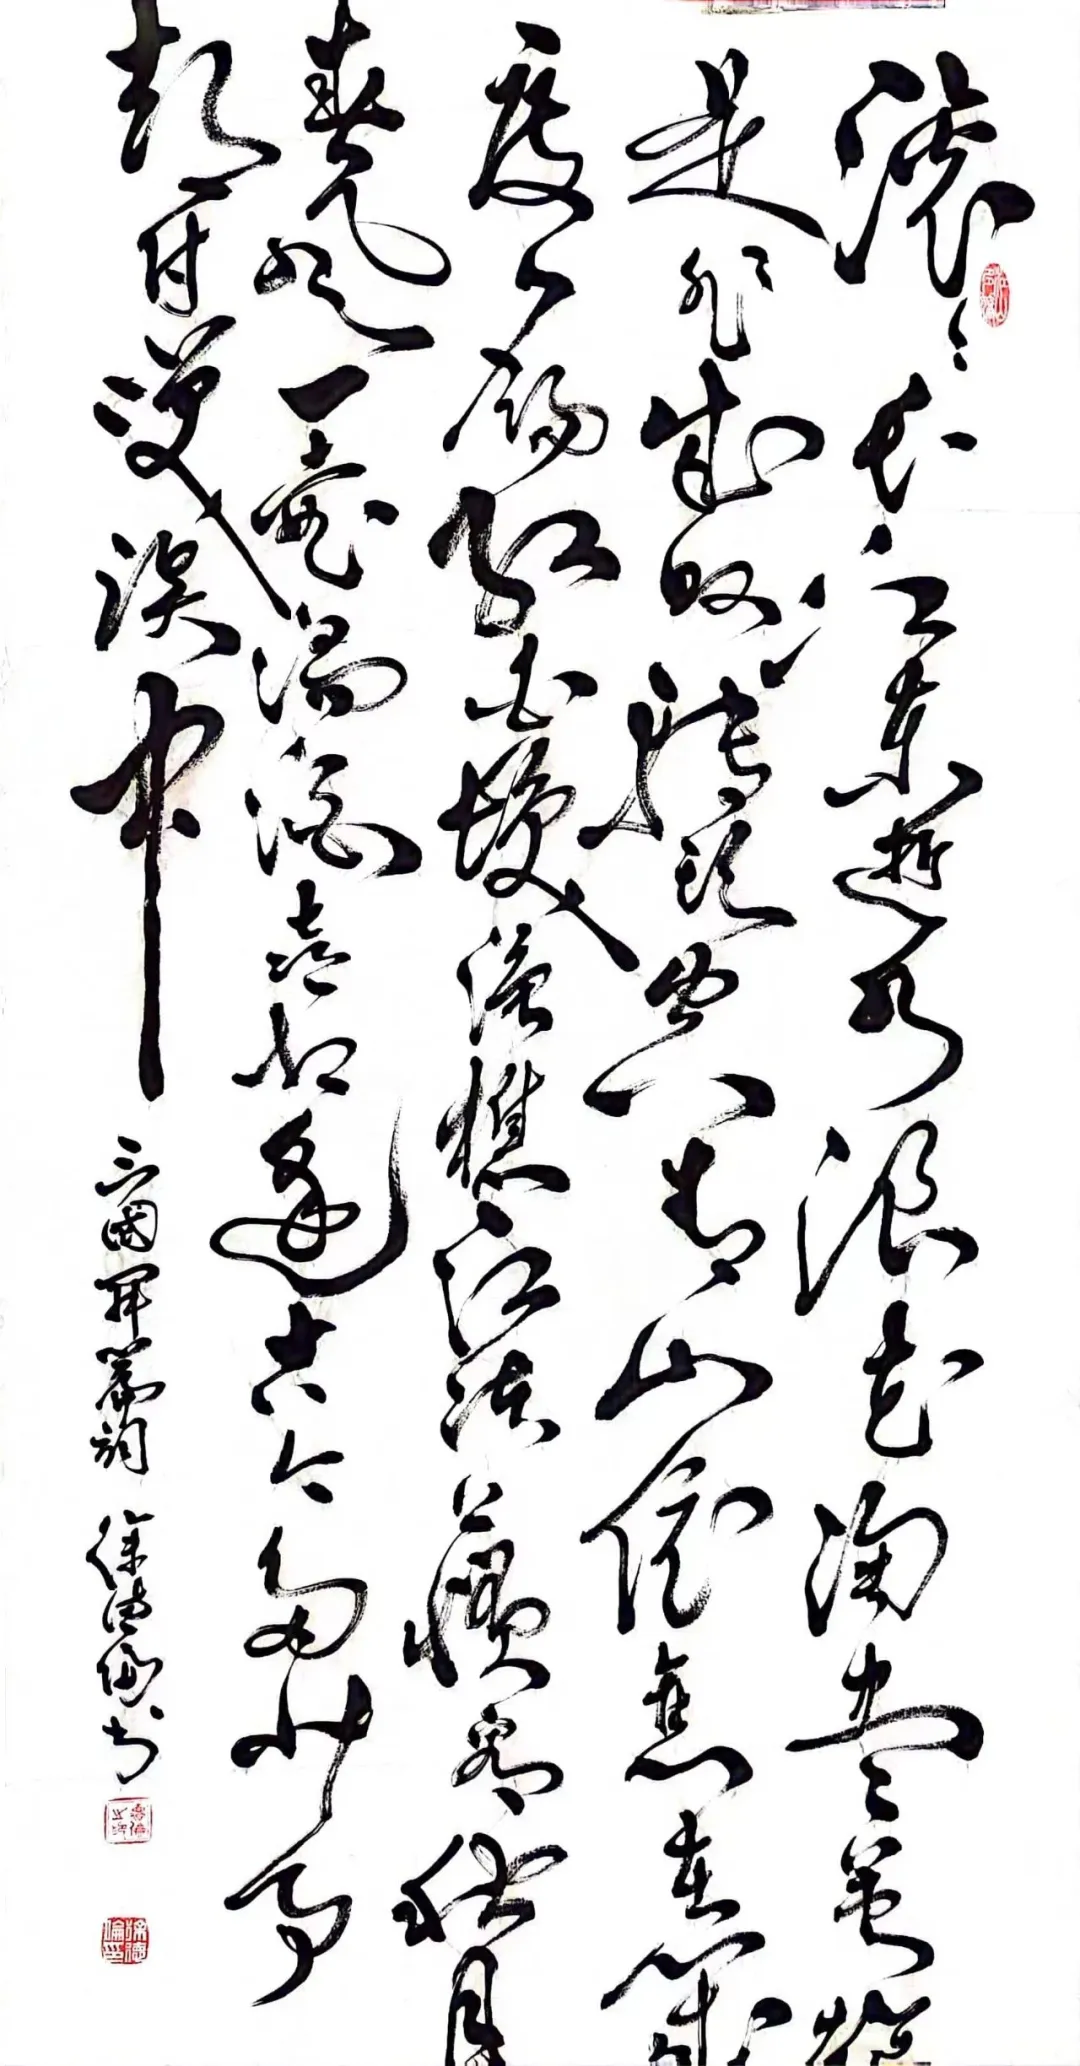 滚滚长江东逝水浪花淘尽英雄
是非成败转头空青山依旧在几
度夕阳红白发渔樵江渚上惯看秋月
春风一壶浊酒喜相逢古今多少事
都付笑谈中
三國开篇词 徐德伦书
徐德倫印